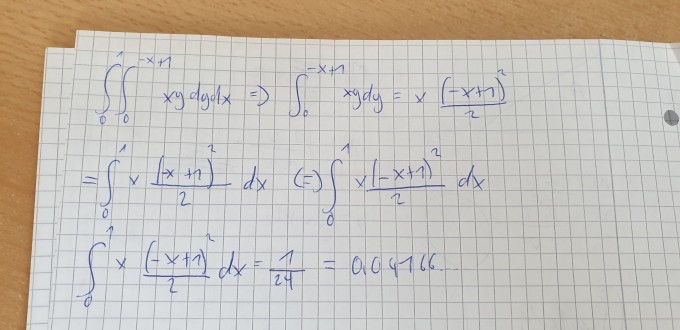 ∫₀¹ ∫₀^(-x+1) xy dy dx => ∫₀^(-x+1) xy dy = x (-x+1)²/2
= ∫₀¹ x (-x+1)²/2 dx (=) ∫₀¹ x (-x+1)²/2 dx
∫₀¹ x (-x+1)²/2 dx = 1/24 = 0,04166...